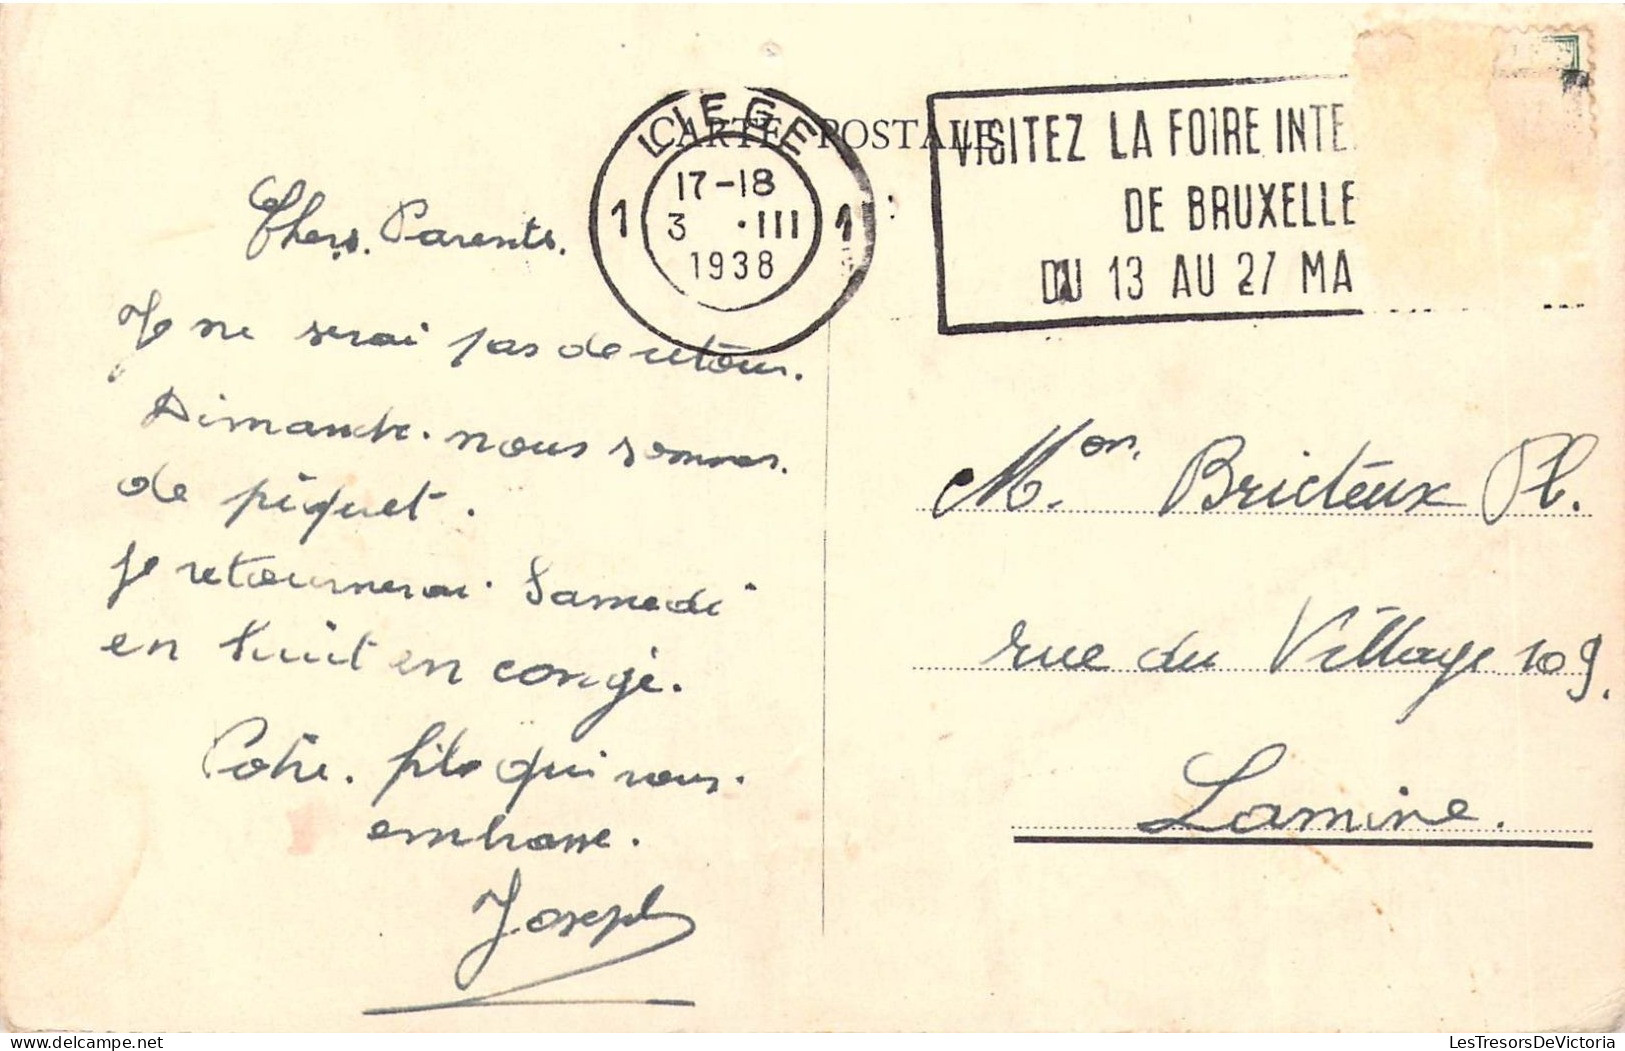 CARTE POSTALE
LIEGE
1 1
17-18
3 .III
1938
VISITEZ LA FOIRE INTE
DE BRUXELLE
DU 13 AU 27 MA
Chers. Parents.
Je ne serai pas de retour.
Dimanche. nous sommes.
de piquet.
Je retournerai Samedi
en huit en congé.
Votre. fils qui vous.
embrasse.
Joseph
Mon. Bricteux Pl.
rue du Village 109.
Lamine.
LesTresorsDeVictoria - Delcampe.net